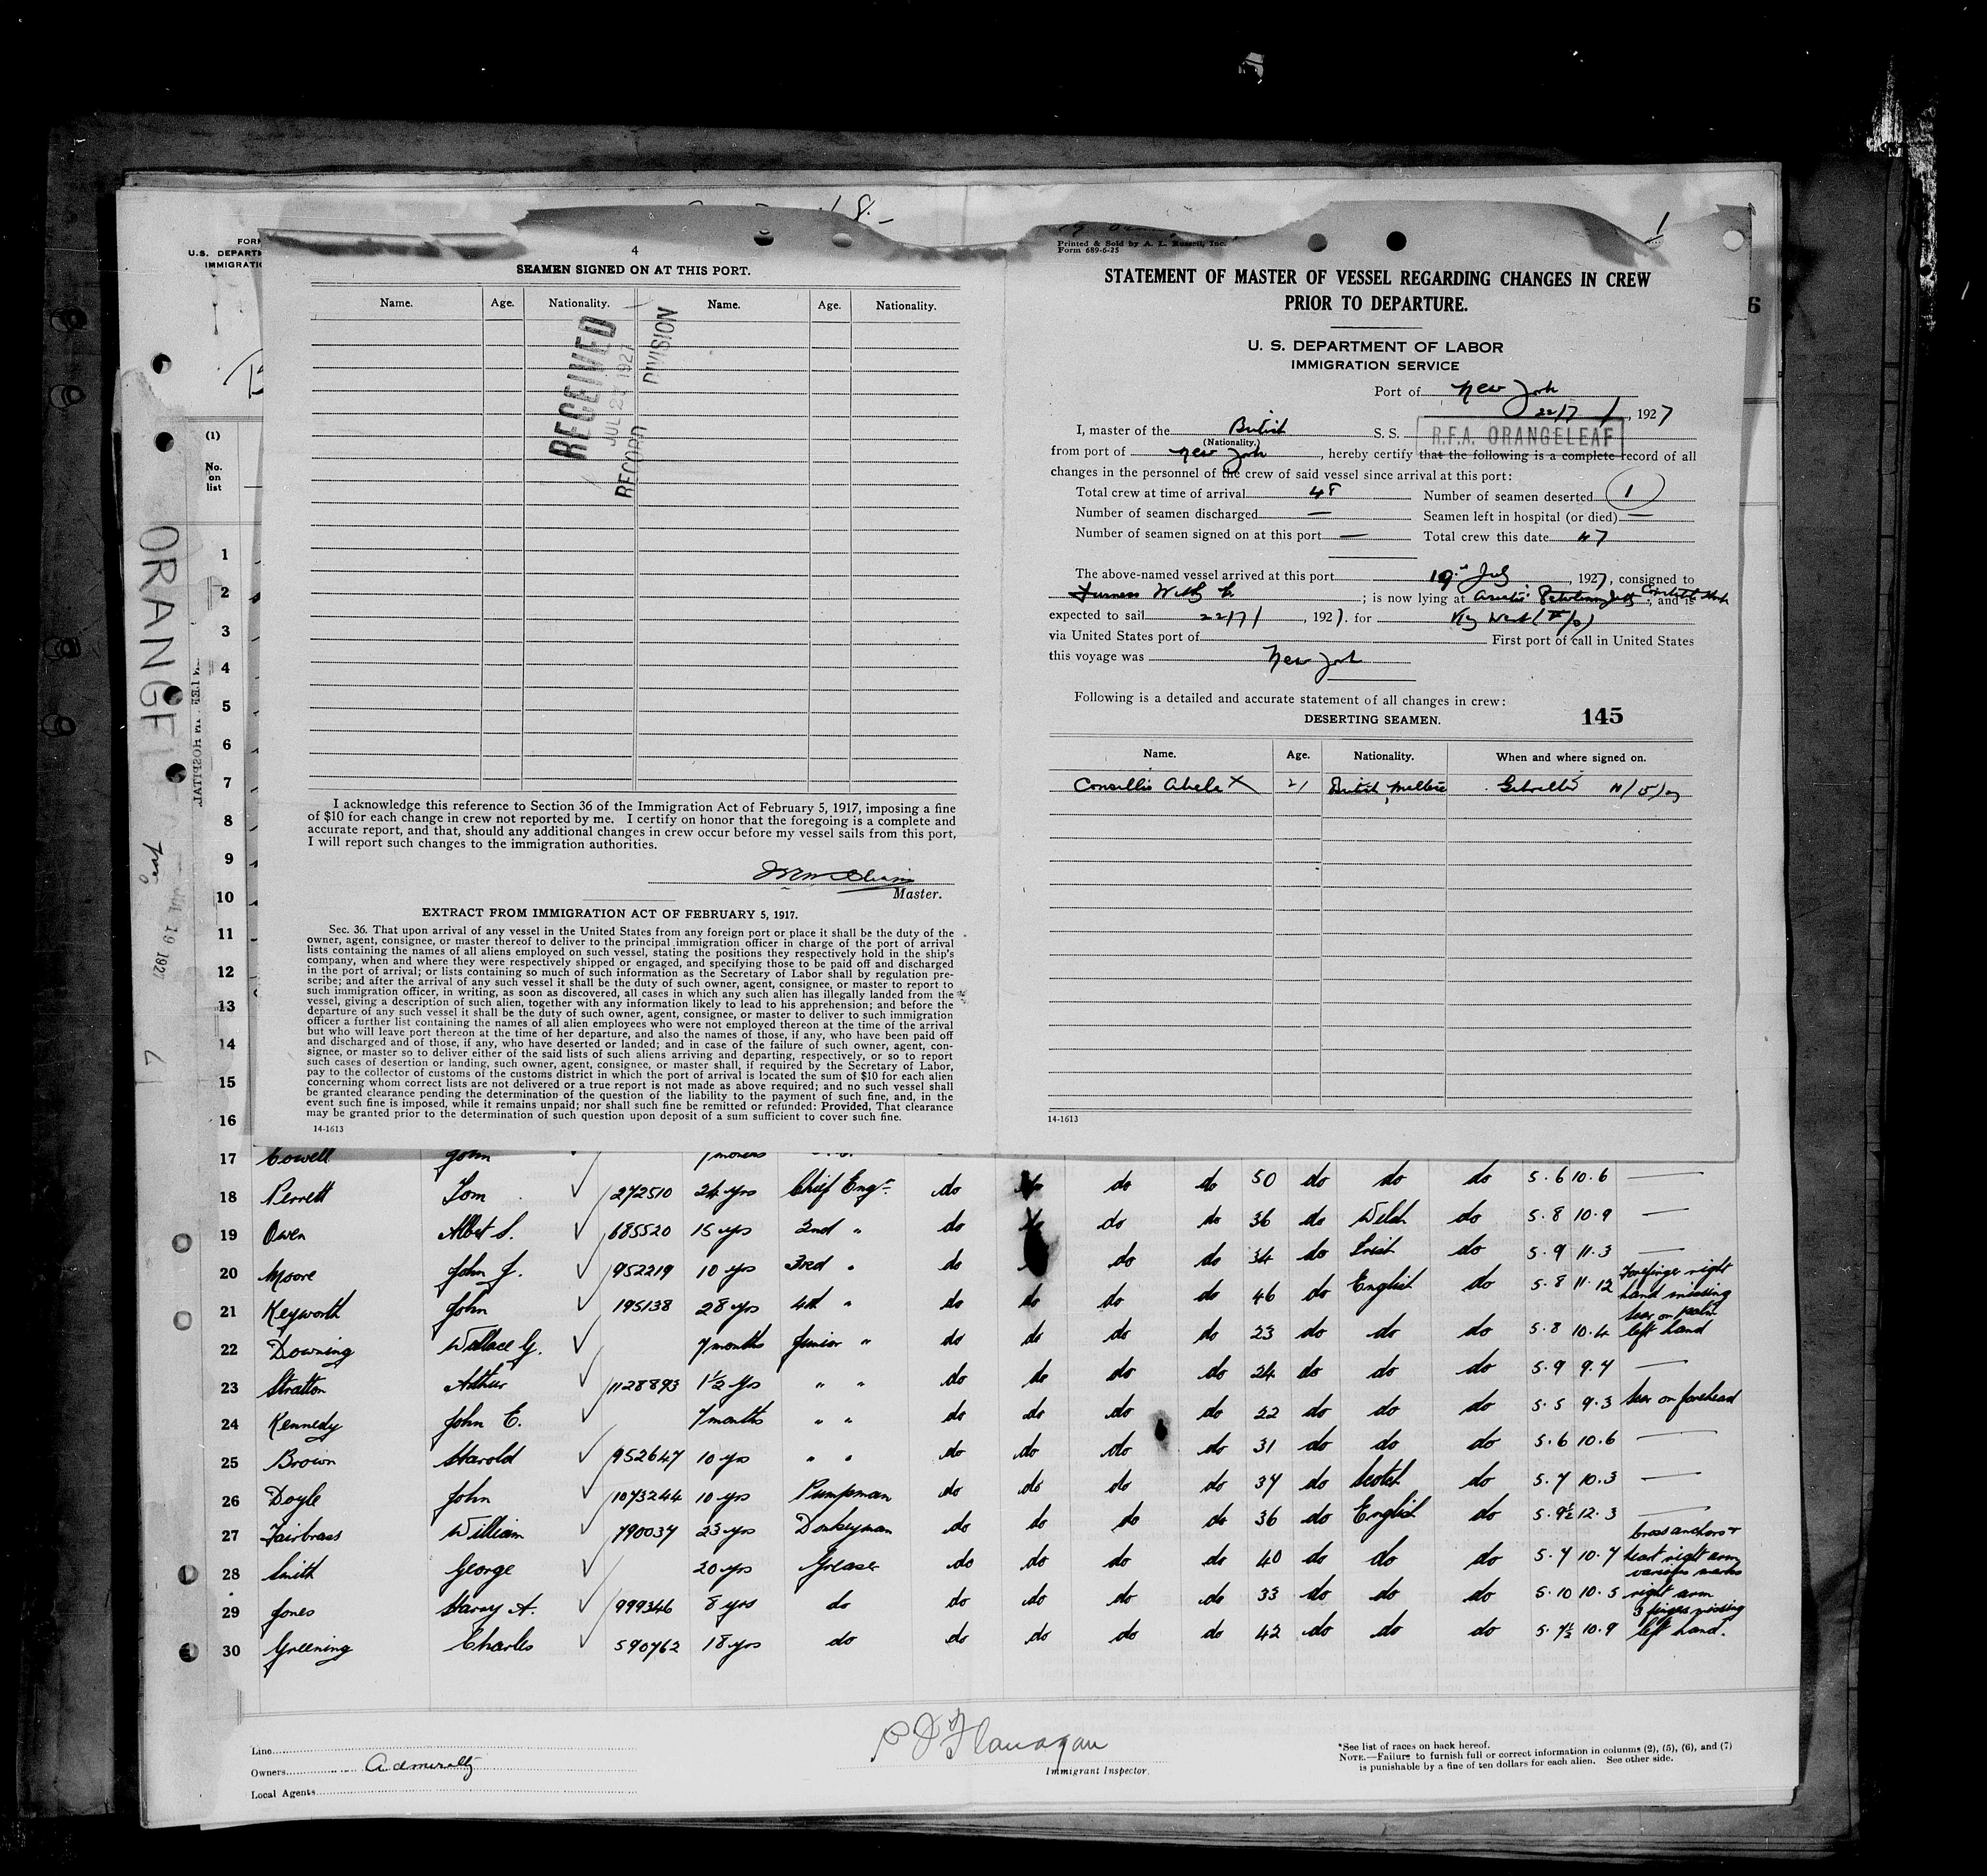 FORM
U. S. DEPARTM
IMMIGRATIO
(1)
No.
on
list
ORANGE
JUL 19 1927
4
SEAMEN SIGNED ON AT THIS PORT.
Name. Age. Nationality. Name. Age. Nationality.
RECEIVED
JUL 2 1927
RECORD DIVISION
I acknowledge this reference to Section 36 of the Immigration Act of February 5, 1917, imposing a fine
of $10 for each change in crew not reported by me. I certify on honor that the foregoing is a complete and
accurate report, and that, should any additional changes in crew occur before my vessel sails from this port,
I will report such changes to the immigration authorities.
Master.
EXTRACT FROM IMMIGRATION ACT OF FEBRUARY 5, 1917.
Sec. 36. That upon arrival of any vessel in the United States from any foreign port or place it shall be the duty of the
owner, agent, consignee, or master thereof to deliver to the principal immigration officer in charge of the port of arrival
lists containing the names of all aliens employed on such vessel, stating the positions they respectively hold in the ship's
company, when and where they were respectively shipped or engaged, and specifying those to be paid off and discharged
in the port of arrival; or lists containing so much of such information as the Secretary of Labor shall by regulation pre-
scribe; and after the arrival of any such vessel it shall be the duty of such owner, agent, consignee, or master to report to
such immigration officer, in writing, as soon as discovered, all cases in which any such alien has illegally landed from the
vessel, giving a description of such alien, together with any information likely to lead to his apprehension; and before the
departure of any such vessel it shall be the duty of such owner, agent, consignee, or master to deliver to such immigration
officer a further list containing the names of all alien employees who were not employed thereon at the time of the arrival
but who will leave port thereon at the time of her departure, and also the names of those, if any, who have been paid off
and discharged and of those, if any, who have deserted or landed; and in case of the failure of such owner, agent, con-
signee, or master so to deliver either of the said lists of such aliens arriving and departing, respectively, or so to report
such cases of desertion or landing, such owner, agent, consignee, or master shall, if required by the Secretary of Labor,
pay to the collector of customs of the customs district in which the port of arrival is located the sum of $10 for each alien
concerning whom correct lists are not delivered or a true report is not made as above required; and no such vessel shall
be granted clearance pending the determination of the question of the liability to the payment of such fine, and, in the
event such fine is imposed, while it remains unpaid; nor shall such fine be remitted or refunded: Provided, That clearance
may be granted prior to the determination of such question upon deposit of a sum sufficient to cover such fine.
14-1613
Printed & Sold by A. L. Russell, Inc.
Form 689-6-25
STATEMENT OF MASTER OF VESSEL REGARDING CHANGES IN CREW
PRIOR TO DEPARTURE.
U. S. DEPARTMENT OF LABOR
IMMIGRATION SERVICE
Port of New York
22/7/, 1927
I, master of the British S. S. R.F.A. ORANGELEAF
(Nationality.)
from port of New York, hereby certify that the following is a complete record of all
changes in the personnel of the crew of said vessel since arrival at this port:
Total crew at time of arrival 48 Number of seamen deserted 1
Number of seamen discharged — Seamen left in hospital (or died) —
Number of seamen signed on at this port — Total crew this date 47
The above-named vessel arrived at this port 19th July, 1927, consigned to
Furness Withy Co; is now lying at Asiatic Petroleum, and is
expected to sail 22/7/, 1927. for Key West (F/O)
via United States port of First port of call in United States
this voyage was New York
Following is a detailed and accurate statement of all changes in crew:
DESERTING SEAMEN. 145
Name. Age. Nationality. When and where signed on.
Consillio Abela X 21 British Maltese Gibraltar
14-1613
6
1
2
3
4
5
6
7
8
9
10
11
12
13
14
15
16
17 Cowell John 7 months
18 Perrett Tom ✓ 272510 24 yrs Chief Engr. do do do do 50 do do do 5.6 10.6 —
19 Owen Albert S. ✓ 685520 15 yrs 2nd " do do do 36 do Welch do 5.8 10.9 —
20 Moore John J. ✓ 952219 10 yrs 3red " do do do 34 do Irish do 5.9 11.3 —
21 Keyworth John ✓ 195138 28 yrs 4th " do do do do 46 do English do 5.8 11.12 Forefinger right hand missing
22 Downing Wallace G. ✓ 7 months Junior " do do do do 23 do do do 5.8 10.4 scar on palm left hand
23 Stratton Arthur ✓ 1128893 1½ yrs " " do do do do 24 do do do 5.9 9.7 —
24 Kennedy John E. ✓ 7 months " " do do do do 22 do do do 5.5 9.3 scar on forehead
25 Brown Harold ✓ 952647 10 yrs " " do do do do 31 do do do 5.6 10.6 —
26 Doyle John ✓ 1073244 10 yrs Pumpman do do do do 37 do Scotch do 5.7 10.3 —
27 Fairbrass William ✓ 790037 23 yrs Donkeyman do do do do 36 do English do 5.9½ 12.3 —
28 Smith George ✓ 20 yrs Greaser do do do do 40 do do do 5.7 10.7 cross anchors + heart right arm
29 Jones Harry A. ✓ 999346 8 yrs do do do do do 33 do do do 5.10 10.5 various marks right arm
30 Greening Charles ✓ 590762 18 yrs do do do do do 42 do do do 5.7½ 10.9 3 fingers missing left hand.
Line
Owners Admiralty
Local Agents
P D Flanagan
Immigrant Inspector.
*See list of races on back hereof.
NOTE.—Failure to furnish full or correct information in columns (2), (5), (6), and (7)
is punishable by a fine of ten dollars for each alien. See other side.